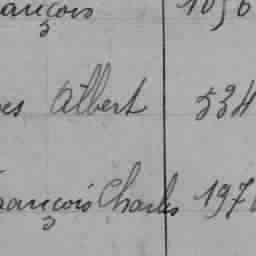 ançois 1056
es Albert 534
ançois Charles 197